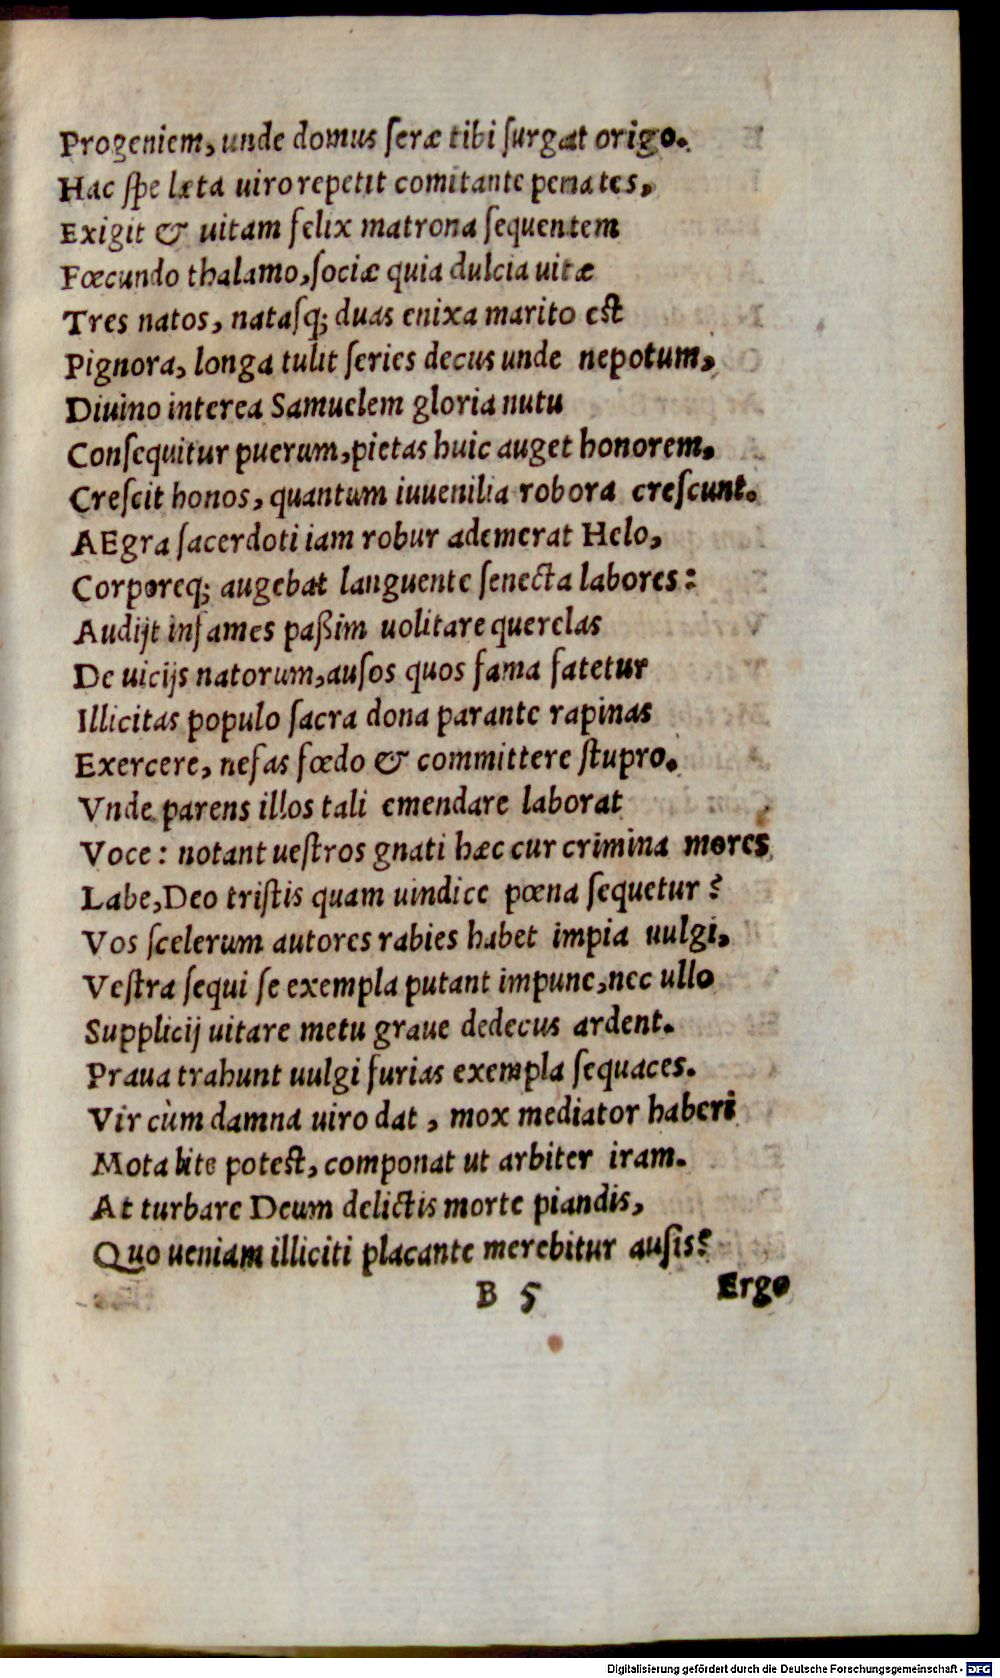 Progeniem, unde domus seræ tibi surgat origo.
Hac spe læta uiro repetit comitante penates,
Exigit & uitam felix matrona sequentem
Fœcundo thalamo, sociæ quia dulcia uitæ
Tres natos, natasq; duas enixa marito est
Pignora, longa tulit series decus unde nepotum,
Diuino interea Samuelem gloria nutu
Consequitur puerum, pietas huic auget honorem,
Crescit honos, quantum iuuenilia robora crescunt.
AEgra sacerdoti iam robur ademerat Helo,
Corporeq; augebat languente senecta labores:
Audijt infames paßim uolitare querelas
De uicijs natorum, ausos quos fama fatetur
Illicitas populo sacra dona parante rapinas
Exercere, nefas fœdo & committere stupro.
Vnde parens illos tali emendare laborat
Voce: notant uestros gnati hæc cur crimina mores
Labe, Deo tristis quam uindice pœna sequetur?
Vos scelerum autores rabies habet impia uulgi,
Vestra sequi se exempla putant impune, nec ullo
Supplicij uitare metu graue dedecus ardent.
Praua trahunt uulgi furias exempla sequaces.
Vir cùm damna uiro dat, mox mediator haberi
Mota lite potest, componat ut arbiter iram.
At turbare Deum delictis morte piandis,
Quo ueniam illiciti placante merebitur ausis?
B 5 Ergo
Digitalisierung gefördert durch die Deutsche Forschungsgemeinschaft - DFG